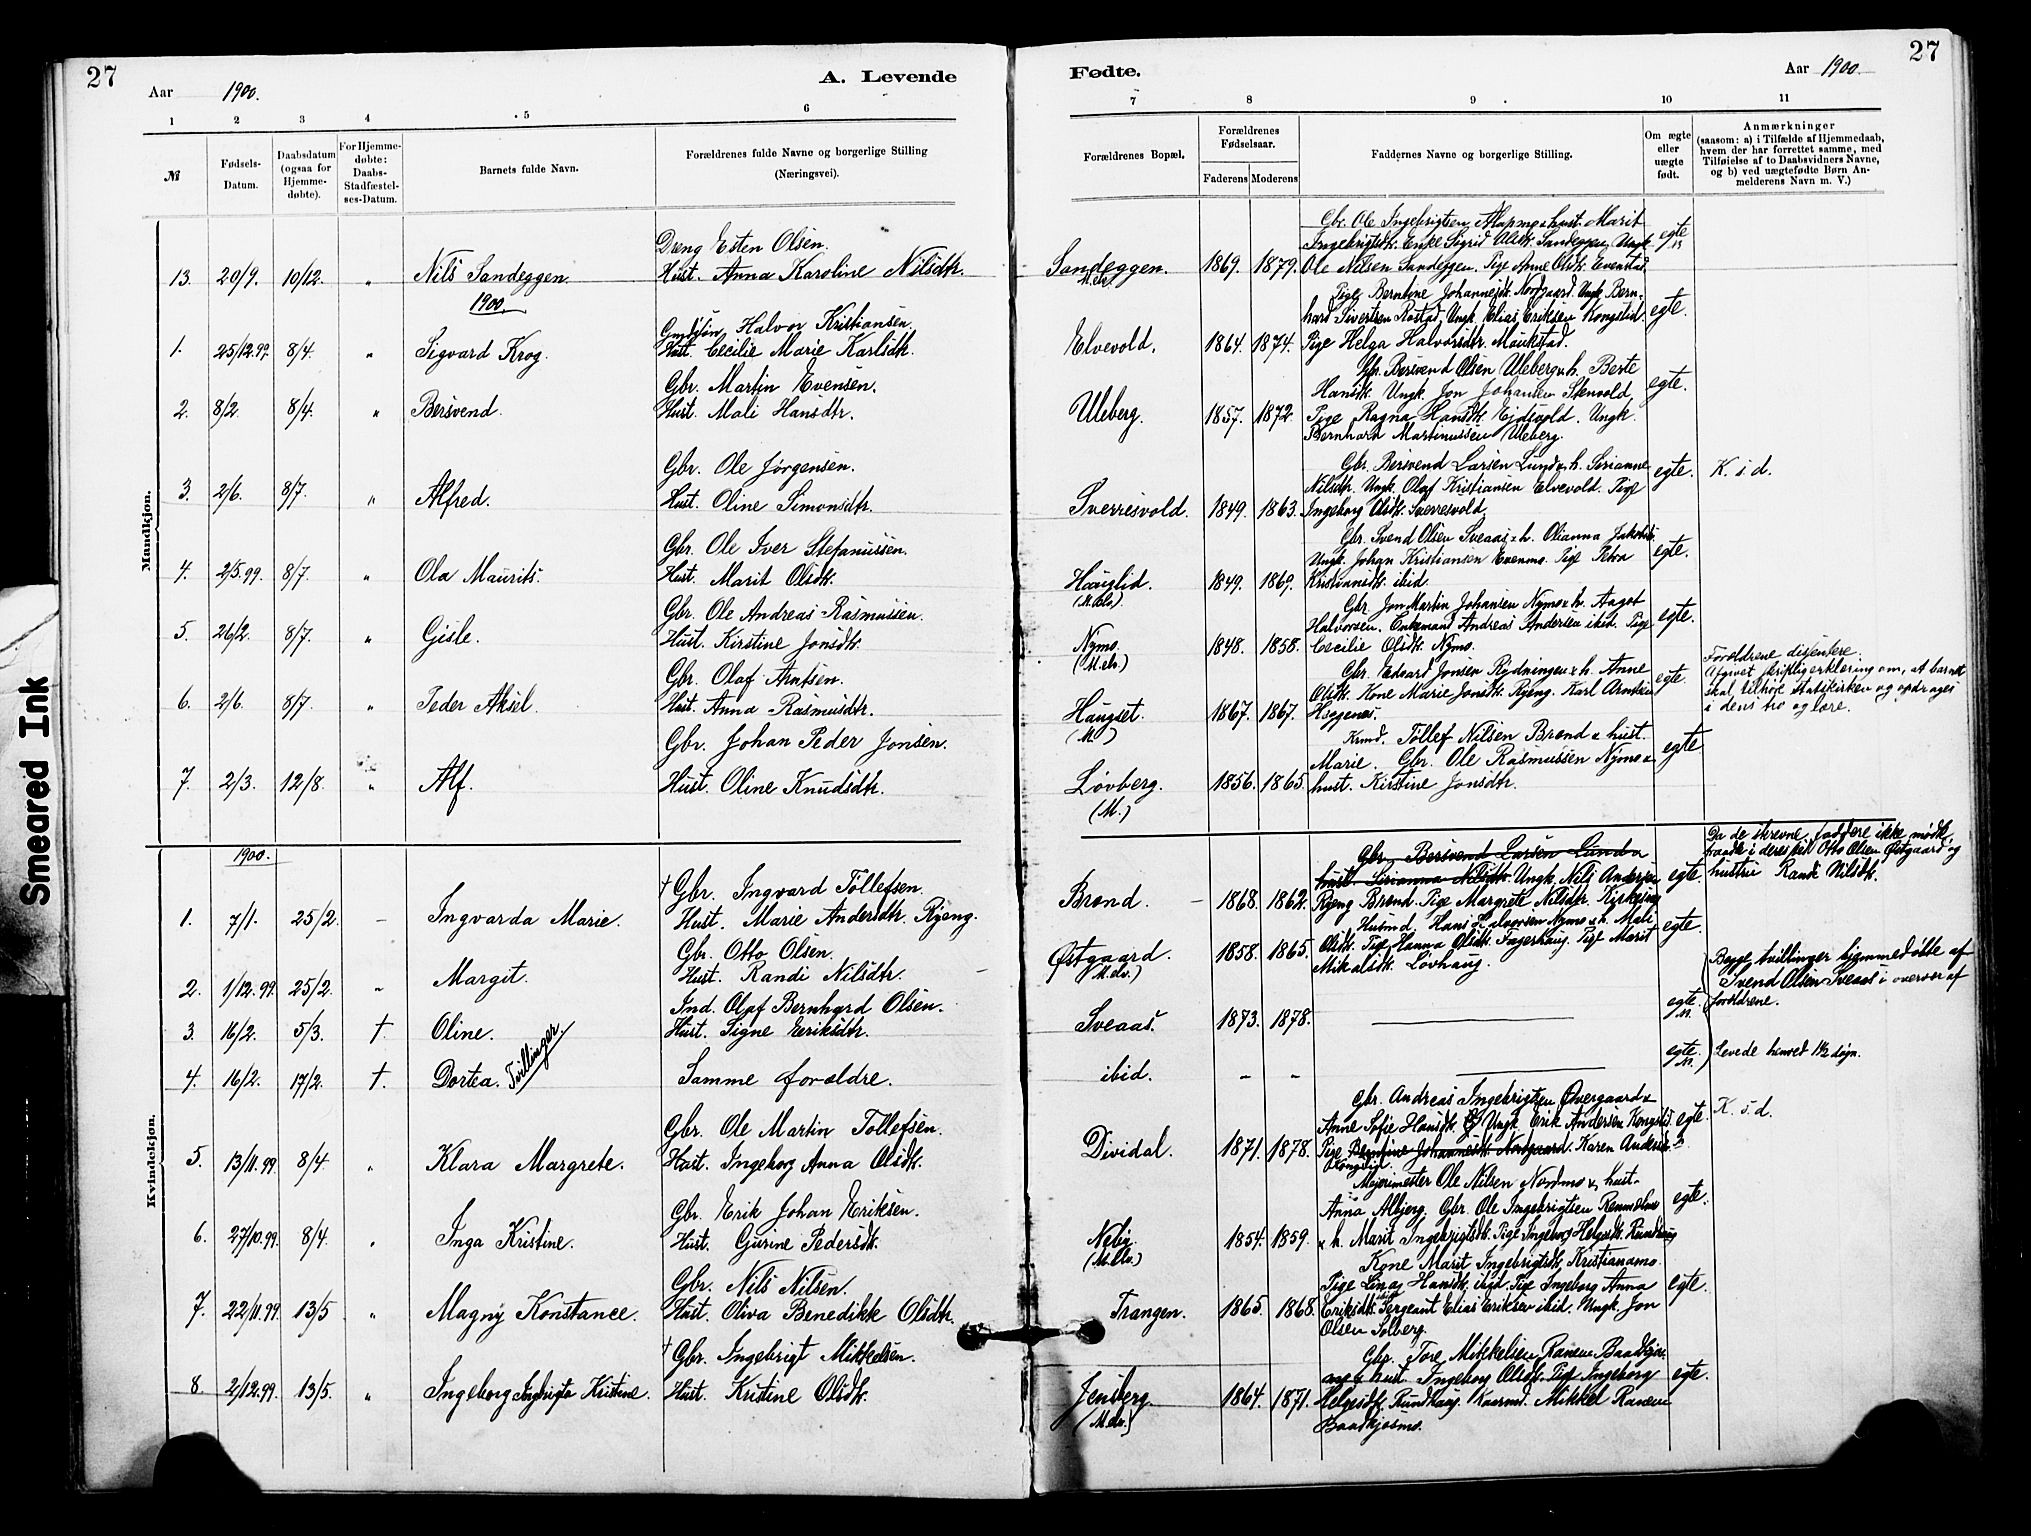 27
Aar 1900.
A. Levende
1 2 3 4 5 6
№
Fødsels-Datum.
Daabsdatum (ogsaa for Hjemme-døbte).
For Hjemme-døbte: Daabs-Stadfæstel-ses-Datum.
Barnets fulde Navn.
Forældrenes fulde Navne og borgerlige Stilling
(Næringsvei).
Mandkjøn.
Dreng Esten Olsen.
13. 20/9. 10/12. " Nils Sandeggen. Hust. Anna Karoline Nilsdtr.
1900.
Halvor Kristiansen.
1. 25/12.99. 8/4. " Sigvard Krog. Hust. Cecilie Marie Karlsdtr.
Gbr. Martin Evensen.
2. 8/2. 8/4. " Bersvend. Hust. Mali Hansdtr.
Gbr. Ole Jørgensen.
3. 2/6. 8/7. " Alfred. Hust. Oline Simonsdtr.
Gbr. Ole Iver Stefanussen.
4. 2/5.99. 8/7. " Ola Maurits. Hust. Marit Olsdtr.
Gbr. Ole Andreas Rasmussen.
5. 26/2. 8/7. " Gisle. Hust. Kirstine Jonsdtr.
Gbr. Olaf Arntsen.
6. 2/6. 8/7. " Peder Aksel. Hust. Anna Rasmusdtr.
Gbr. Johan Peder Jonsen.
7. 2/3. 12/8. " Alf. Hust. Oline Knudsdtr.
Kvindekjøn.
1900.
† Gbr. Ingvard Tollefsen.
1. 7/1. 25/2. – Ingvarda Marie. Hust. Marie Andersdtr. Rjeng.
Gbr. Otto Olsen.
2. 1/12.99. 25/2. " Margit. Hust. Randi Nilsdtr.
Ind. Olaf Bernhard Olsen.
3. 16/2. 5/3. † Oline. Hust. Signe Eriksdtr.
Tvillinger
4. 16/2. 17/2. †. Dortea. Samme forældre.
Gbr. Ole Martin Tollefsen.
5. 13/11.99. 8/4. " Klara Margrete. Hust. Ingeborg Anna Olsdtr.
Gbr. Erik Johan Eriksen.
6. 27/10.99. 8/4. " Inga Kristine. Hust. Gurine Pedersdtr.
Gbr. Nils Nilsen.
7. 22/11.99. 13/5. " Magny Konstance. Hust. Oliva Benedikk Olsdtr.
† Gbr. Ingebrigt Mikkelsen.
8. 2/12.99. 13/5. " Ingeborg Kristine. Hust. Kristine Olsdtr.
Fødte.
Aar 1900.
27
7 8 9 10 11
Forældrenes Bopæl.
Forældrenes Fødselsaar.
Faderens. Moderens.
Faddernes Navne og borgerlige Stilling.
Om ægte eller uægte født.
Anmærkninger
(saasom: a) i Tilfælde af Hjemmedaab,
hvem der har forrettet samme, med
Tilføielse af to Daabsvidners Navne,
og b) ved uægtefødte Børn An-
melderens Navn m. V.)
Gbr. Ole Ingebrigtsen hust. Marit
Ingebrigtsdtr. Enke Sigrid Olsdtr. Sandeggen. Ungk. egte
Sandeggen. 1869. 1879. Ole Nilsen Sandeggen. Pige Anne Olsdtr. Evenstad.
Pige Berntine Johannesdtr. Nordgaard. Ungk. Bern-
hard Sivertsen Rostad. Ungk. Elias Eriksen Kongslid. egte.
Elvevold. 1864. 1874. Pige Helga Halvorsdtr. Moukstad.
Gbr. Bersvend Olsen Uleberg & h. Berte
Hansdtr. Ungk. Jon Johansen Stenvold, egte.
Uleberg. 1857. 1872. Pige Ragna Hansdtr. Eidsvold. Ungk.
Bernhard Martinussen Uleberg.
Gbr. Bersvend Larsen Lund & h. Serianne egte. K. s. d.
Nilsdtr. Ungk. Olaf Kristiansen Elvevold. Pige
Sverresvold. 1849. 1863. Ingeborg Olsdtr. Sverresvold.
Gbr. Svend Olsen Sveaas & h. Olianna
Ungk. Johan Kristiansen Evenmo. Pige Petra egte.
Hauglid. 1849. 1869. Kristiansdtr. ibid
(M.elv.)
Gbr. Jon Martin Johansen Nymo & h. Aagot
Halvorsen. Enkemand Andreas Andersen ibid. Pige egte.
Nymo. 1848. 1858. Cecilie Olsdtr. Nymo.
(M.elv.)
Forældrene disentere.
Gbr. Edvard Jonsen Rydningen & h. Anne Afgivet skriftlig erklering om, at barnet
Olsdtr. Kone Marie Jonsdtr. Rjeng. Karl Arntsen egte. skal tilhøre statskirken og opdrages
Haugset. 1867. 1867. i dens tro og lære.
(M.)
Tollef Nilsen Brænd & hust.
Marie. Gbr. Ole Rasmussen Nymo & egte
Løvberg. 1856. 1865. hust. Kirstine Jonsdtr.
(M.)
Gbr. Bersvend Larsen Lund & Da de skrevne faddere ikke mødte,
hust. Serianna Nilsdtr. Ungk. Nils Andersen egte. traadte i deres sted Otto Olsen Østgaard og
Brænd. 1868. 1862. Rjeng Brænd. Pige Margrete Nilsdtr. hustru Randi Nilsdtr.
Husmd. Hans Halvorsen Nymo & h. Mali egte.
Østgaard. 1858. 1865. Olsdtr. Pige Hanna Olsdtr. Pige Marit
(M.elv.) Mikalsdtr. Løvhaug.
Begge tvillinger hjemmedøbte af
Svend Olsen Sveaas i overvær af
Sveaas. 1873. 1878. egte forældrene.
ibid. – – egte. Levede henved 1½ døgn.
Gbr. Andreas Ingebrigtsen Øvergaard & K. s. d.
Anne Sofie Hansdtr. Ungk. Erik Andersen Kongslid egte.
Dividal. 1871. 1878. Pige Berntine Johannesdtr. Nordgaard. Karen Andersdtr.
Kongslid
Mejerimester Ole Nilsen Nordmo & hust.
Anna Albjerg. Gbr. Ole Ingebrigtsen egte.
Neby. 1854. 1859. & h. Marit Ingebrigtsdtr. Pige Ingeborg Helgesdtr. Rundhaug
(M.Elv.) Kone Marit Ingebrigtsdtr. Kristianamo.
Pige Lina Hansdtr. ibid. Pige Ingeborg Anna egte
Trangen. 1865. 1868. Eriksdtr. Sergeant Elias Eriksen ibid. Ungk. Jon
Olsen Solberg.
Gbr. Tore Mikkelsen
hust. Ingeborg Olsdtr. Pige Ingeborg egte.
Jensberg. 1864. 1871. Helgesdtr. Rundhaug. Mikkel
(M.elv.)
Smeared Ink